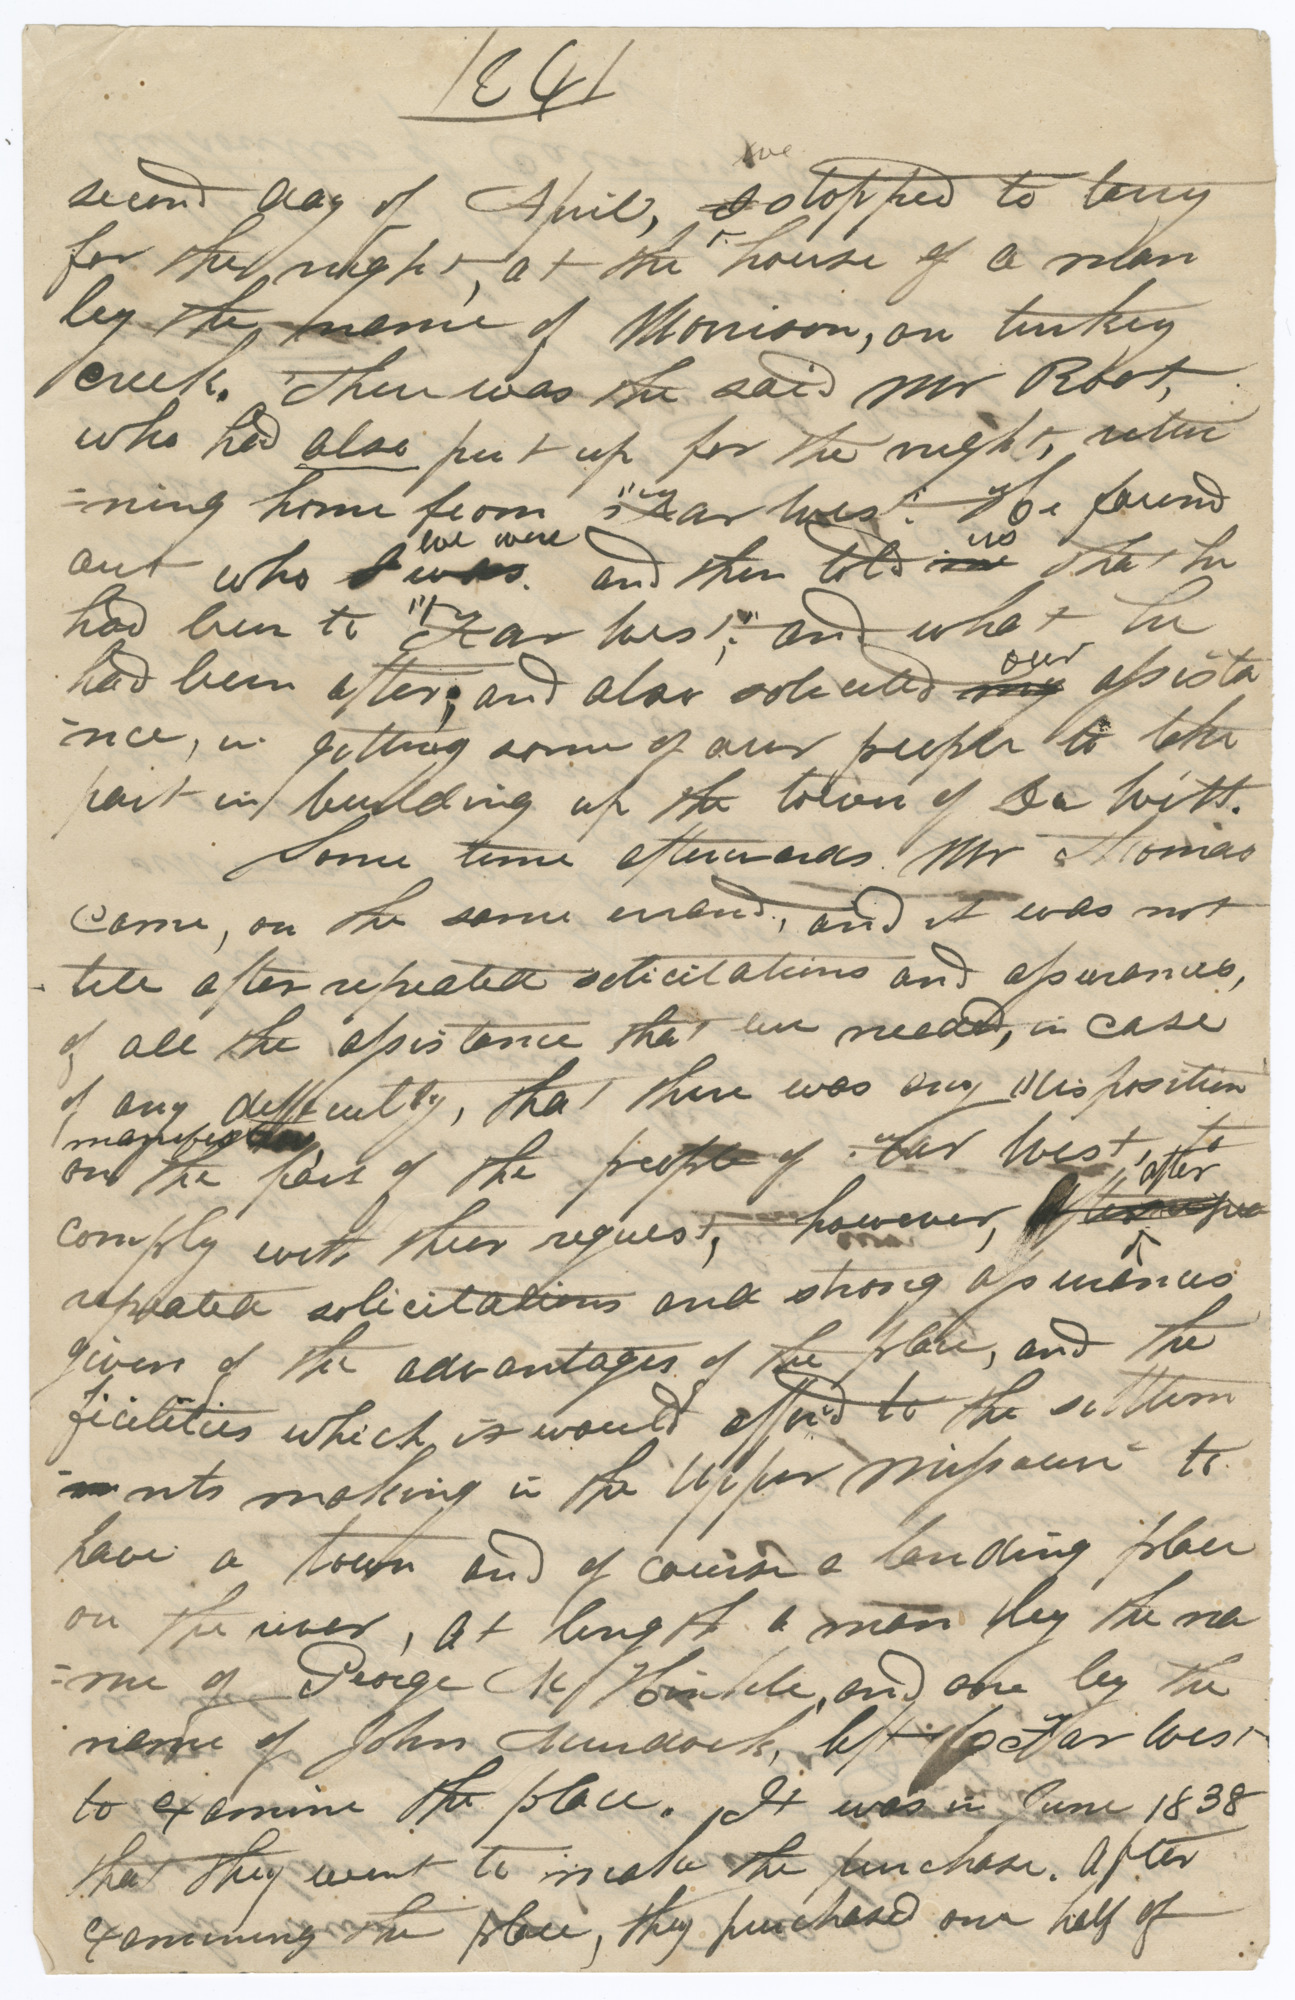 1861
second day of April, we I stopped to tarry
for the night, at the house of a man
by the name of Morrison, on turkey
creek. There was the said Mr Root,
who had also put up for the night, retur
=ning home from "Far West". He found
we were us
out who I was. and then told me that he
had been to "Far West," and what he
our
had been after; and also solicited my assista
=nce, in getting some of our people to take
part in building up the town of De Witt.
Some time afterwards Mr Thomas
came, on the same errand, and it was not
till after repeated solicitations and assurances,
of all the assistance that we needed, in case
of any difficulty, that there was any disposition
manifested
on the part of the people of Far West, to
after
comply with their request, however,
repeated solicitations and strong assurances
given of the advantages of the place, and the
ficilities which it would afford to the settlem
=nts making in the Upper Missouri to
have a town and of course a landing place
on the river, at length a man by the na
=me of George M Hinkle, and one by the
name of John Murdock, left Far West
to examine the place. It was in June 1838
that they went to make the purchase. After
examining the place, they purchased one half of